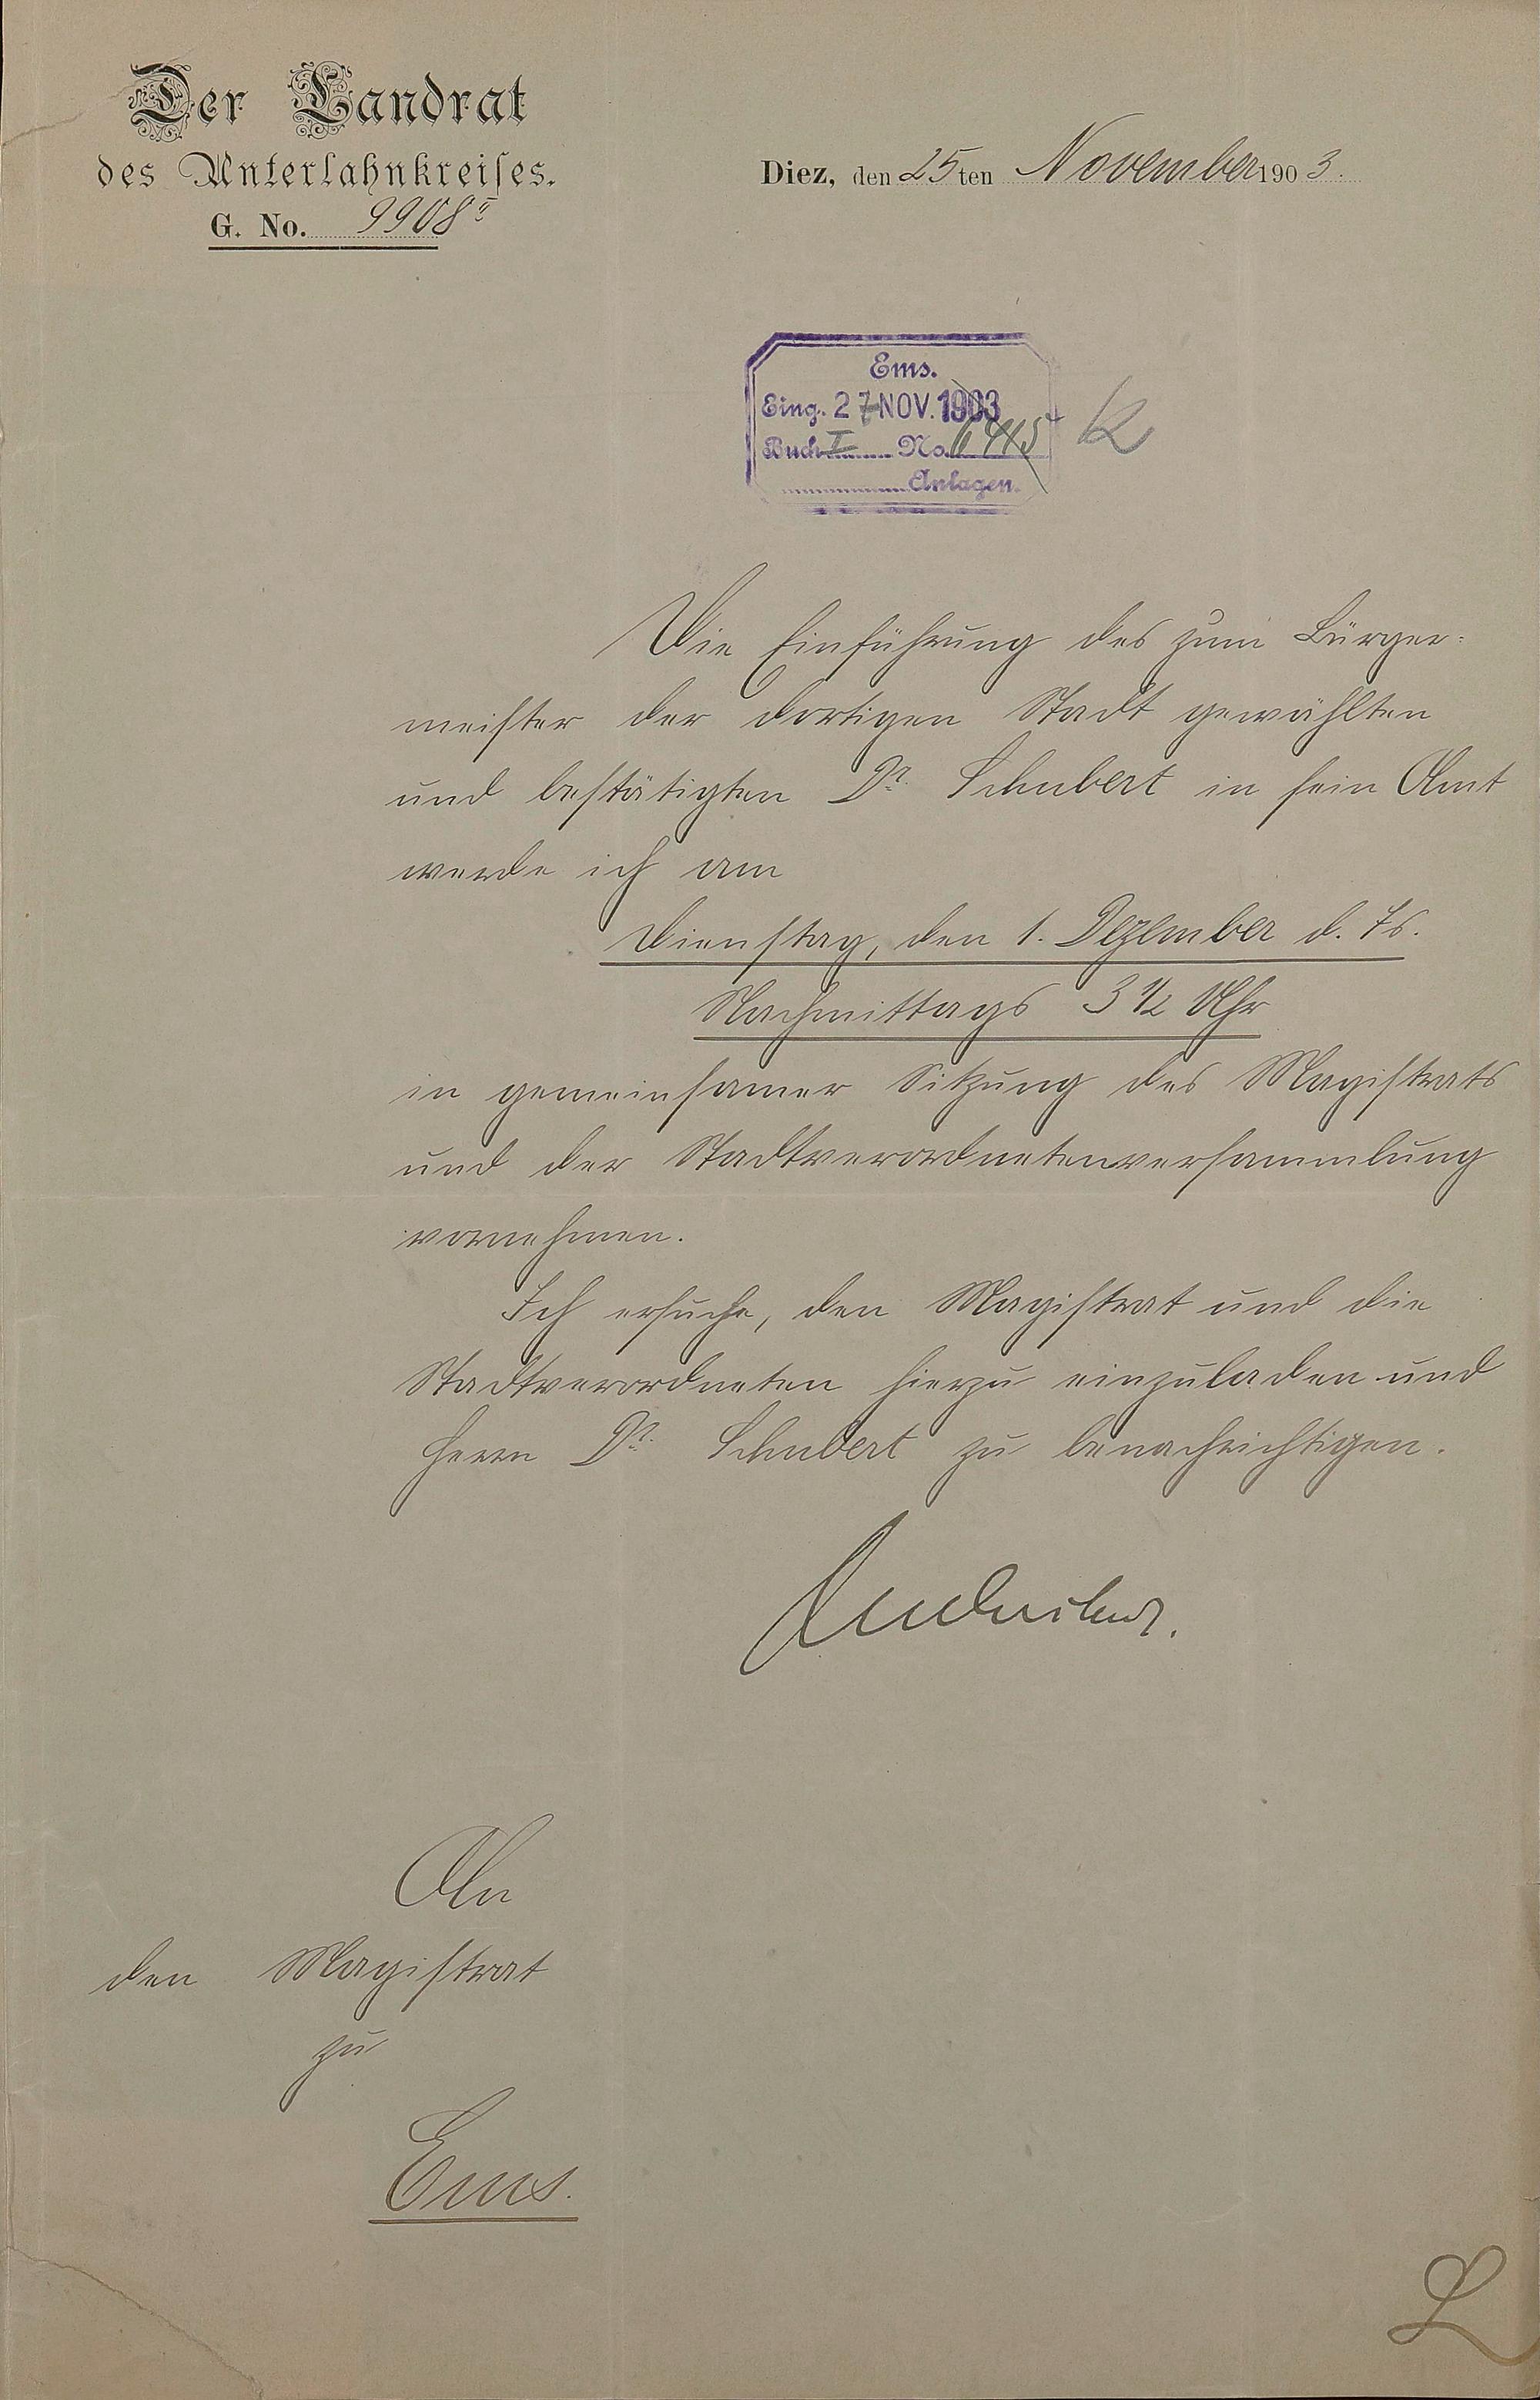 Der Landrat
des Unterlahnkreises.
G. No. 9908 II
Diez, den 25ten November 1903.
Ems.
Eing. 27 NOV. 1903
Buch I No. 6415
Anlagen.
K
Die Einführung des zum Bürger-
meister der dortigen Stadt gewählten
und bestätigten Dr. Schubert in sein Amt
werde ich am
Dienstag, den 1. Dezember d. Js.
Nachmittags 3 1/2 Uhr
in gemeinsamer Sitzung des Magistrats
und der Stadtverordnetenversammlung
vornehmen.
Ich ersuche, den Magistrat und die
Stadtverordneten hierzu einzuladen und
Herrn Dr. Schubert zu benachrichtigen.
An
den Magistrat
zu
Ems.